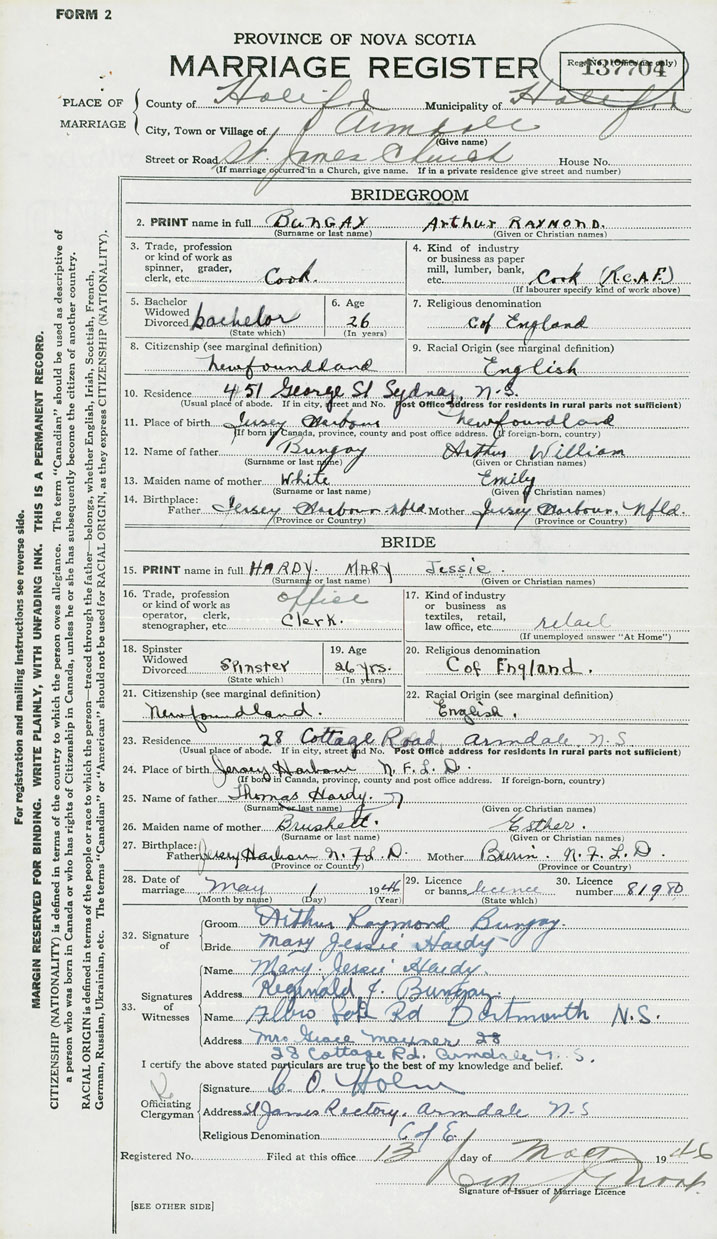 FORM 2
PROVINCE OF NOVA SCOTIA
MARRIAGE REGISTER
Reg. No. (Office use only)
137704
PLACE OF MARRIAGE
County of Halifax Municipality of Halifax
City, Town or Village of Armdale
(Give name)
Street or Road St James Church House No.
(If marriage occurred in a Church, give name. If in a private residence give street and number)
BRIDEGROOM
2. PRINT name in full BUNGAY ARTHUR RAYMOND.
(Surname or last name) (Given or Christian names)
3. Trade, profession or kind of work as spinner, grader, clerk, etc. Cook.
4. Kind of industry or business as paper mill, lumber, bank, etc. Cook (R.C.A.F.)
(If labourer specify kind of work above)
5. Bachelor Widowed Divorced bachelor
(State which)
6. Age 26
(In years)
7. Religious denomination
C of England
8. Citizenship (see marginal definition)
Newfoundland
9. Racial Origin (see marginal definition)
English
10. Residence 451 George St Sydney, N.S.
(Usual place of abode. If in city, street and No. Post Office address for residents in rural parts not sufficient)
11. Place of birth Jersey Harbour Newfoundland
(If born in Canada, province, county and post office address. If foreign-born, country)
12. Name of father Bungay Arthur William
(Surname or last name) (Given or Christian names)
13. Maiden name of mother White Emily
(Surname or last name) (Given or Christian names)
14. Birthplace: Father Jersey Harbour Nfld. Mother Jersey Harbour, Nfld.
(Province or Country) (Province or Country)
BRIDE
15. PRINT name in full HARDY. MARY Jessie.
(Surname or last name) (Given or Christian names)
16. Trade, profession or kind of work as operator, clerk, stenographer, etc. office Clerk.
17. Kind of industry or business as textiles, retail, law office, etc. retail
(If unemployed answer "At Home")
18. Spinster Widowed Divorced SPINSTER
(State which)
19. Age 26 yrs.
(In years)
20. Religious denomination
C of England.
21. Citizenship (see marginal definition)
Newfoundland.
22. Racial Origin (see marginal definition)
English.
23. Residence 28 Cottage Road Armdale, N.S.
(Usual place of abode. If in city, street and No. Post Office address for residents in rural parts not sufficient)
24. Place of birth Jersey Harbour N.F.L.D.
(If born in Canada, province, county and post office address. If foreign-born, country)
25. Name of father Thomas Hardy.
(Surname or last name) (Given or Christian names)
26. Maiden name of mother Brushett. Esther.
(Surname or last name) (Given or Christian names)
27. Birthplace: Father Jersey Harbour N.F.L.D. Mother Burin. N.F.L.D.
(Province or Country) (Province or Country)
28. Date of marriage May 1 1946
(Month by name) (Day) (Year)
29. Licence or banns licence
(State which)
30. Licence number 81980
32. Signature of
Groom Arthur Raymond Bungay.
Bride Mary Jessie Hardy
33. Signatures of Witnesses
Name Mary Jessie Hardy.
Address Reginald J. Bungay.
Name Albro Rd Dartmouth N.S.
Address Mrs Grace 28
28 Cottage Rd. Armdale N.S.
I certify the above stated particulars are true to the best of my knowledge and belief.
Officiating Clergyman
Signature C O
Address St James Rectory, Armdale N.S
Religious Denomination C of E.
Registered No. Filed at this office 13 day of May 1946
Signature of Issuer of Marriage Licence
[SEE OTHER SIDE]
For registration and mailing instructions see reverse side.
MARGIN RESERVED FOR BINDING. WRITE PLAINLY, WITH UNFADING INK. THIS IS A PERMANENT RECORD.
CITIZENSHIP (NATIONALITY) is defined in terms of the country to which the person owes allegiance. The term "Canadian" should be used as descriptive of
a person who was born in Canada or who has rights of Citizenship in Canada, unless he or she has subsequently become the citizen of another country.
RACIAL ORIGIN is defined in terms of the people or race to which the person—traced through the father—belongs, whether English, Irish, Scottish, French,
German, Russian, Ukrainian, etc. The terms "Canadian" or "American" should not be used for RACIAL ORIGIN, as they express CITIZENSHIP (NATIONALITY).